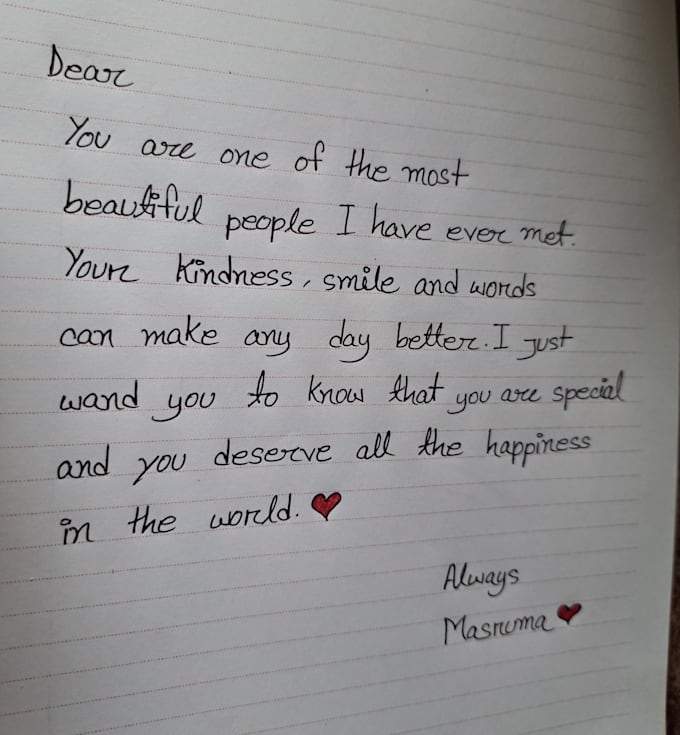 Dear
You are one of the most
beautiful people I have ever met.
Your kindness, smile and words
can make any day better. I just
wand you to know that you are special
and you deserve all the happiness
in the world. ❤
Always
Masruma ❤